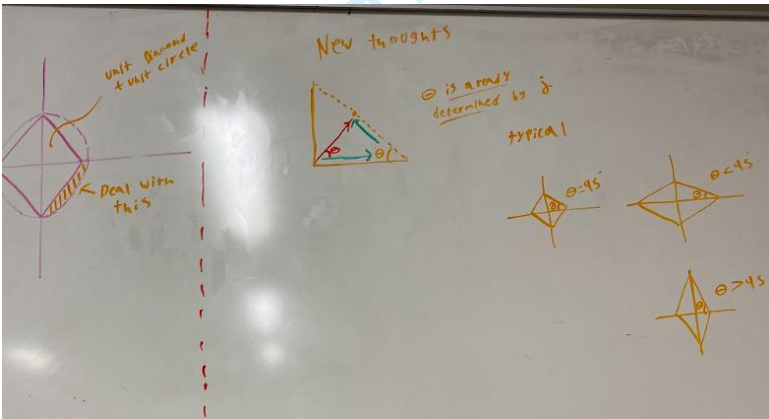 unit Diamond
+ unit circle
Deal with
this
New thoughts
θ
θ
θ is already
determined by j
typical
θ=45°
θ
θ<45
θ
θ>45
θ